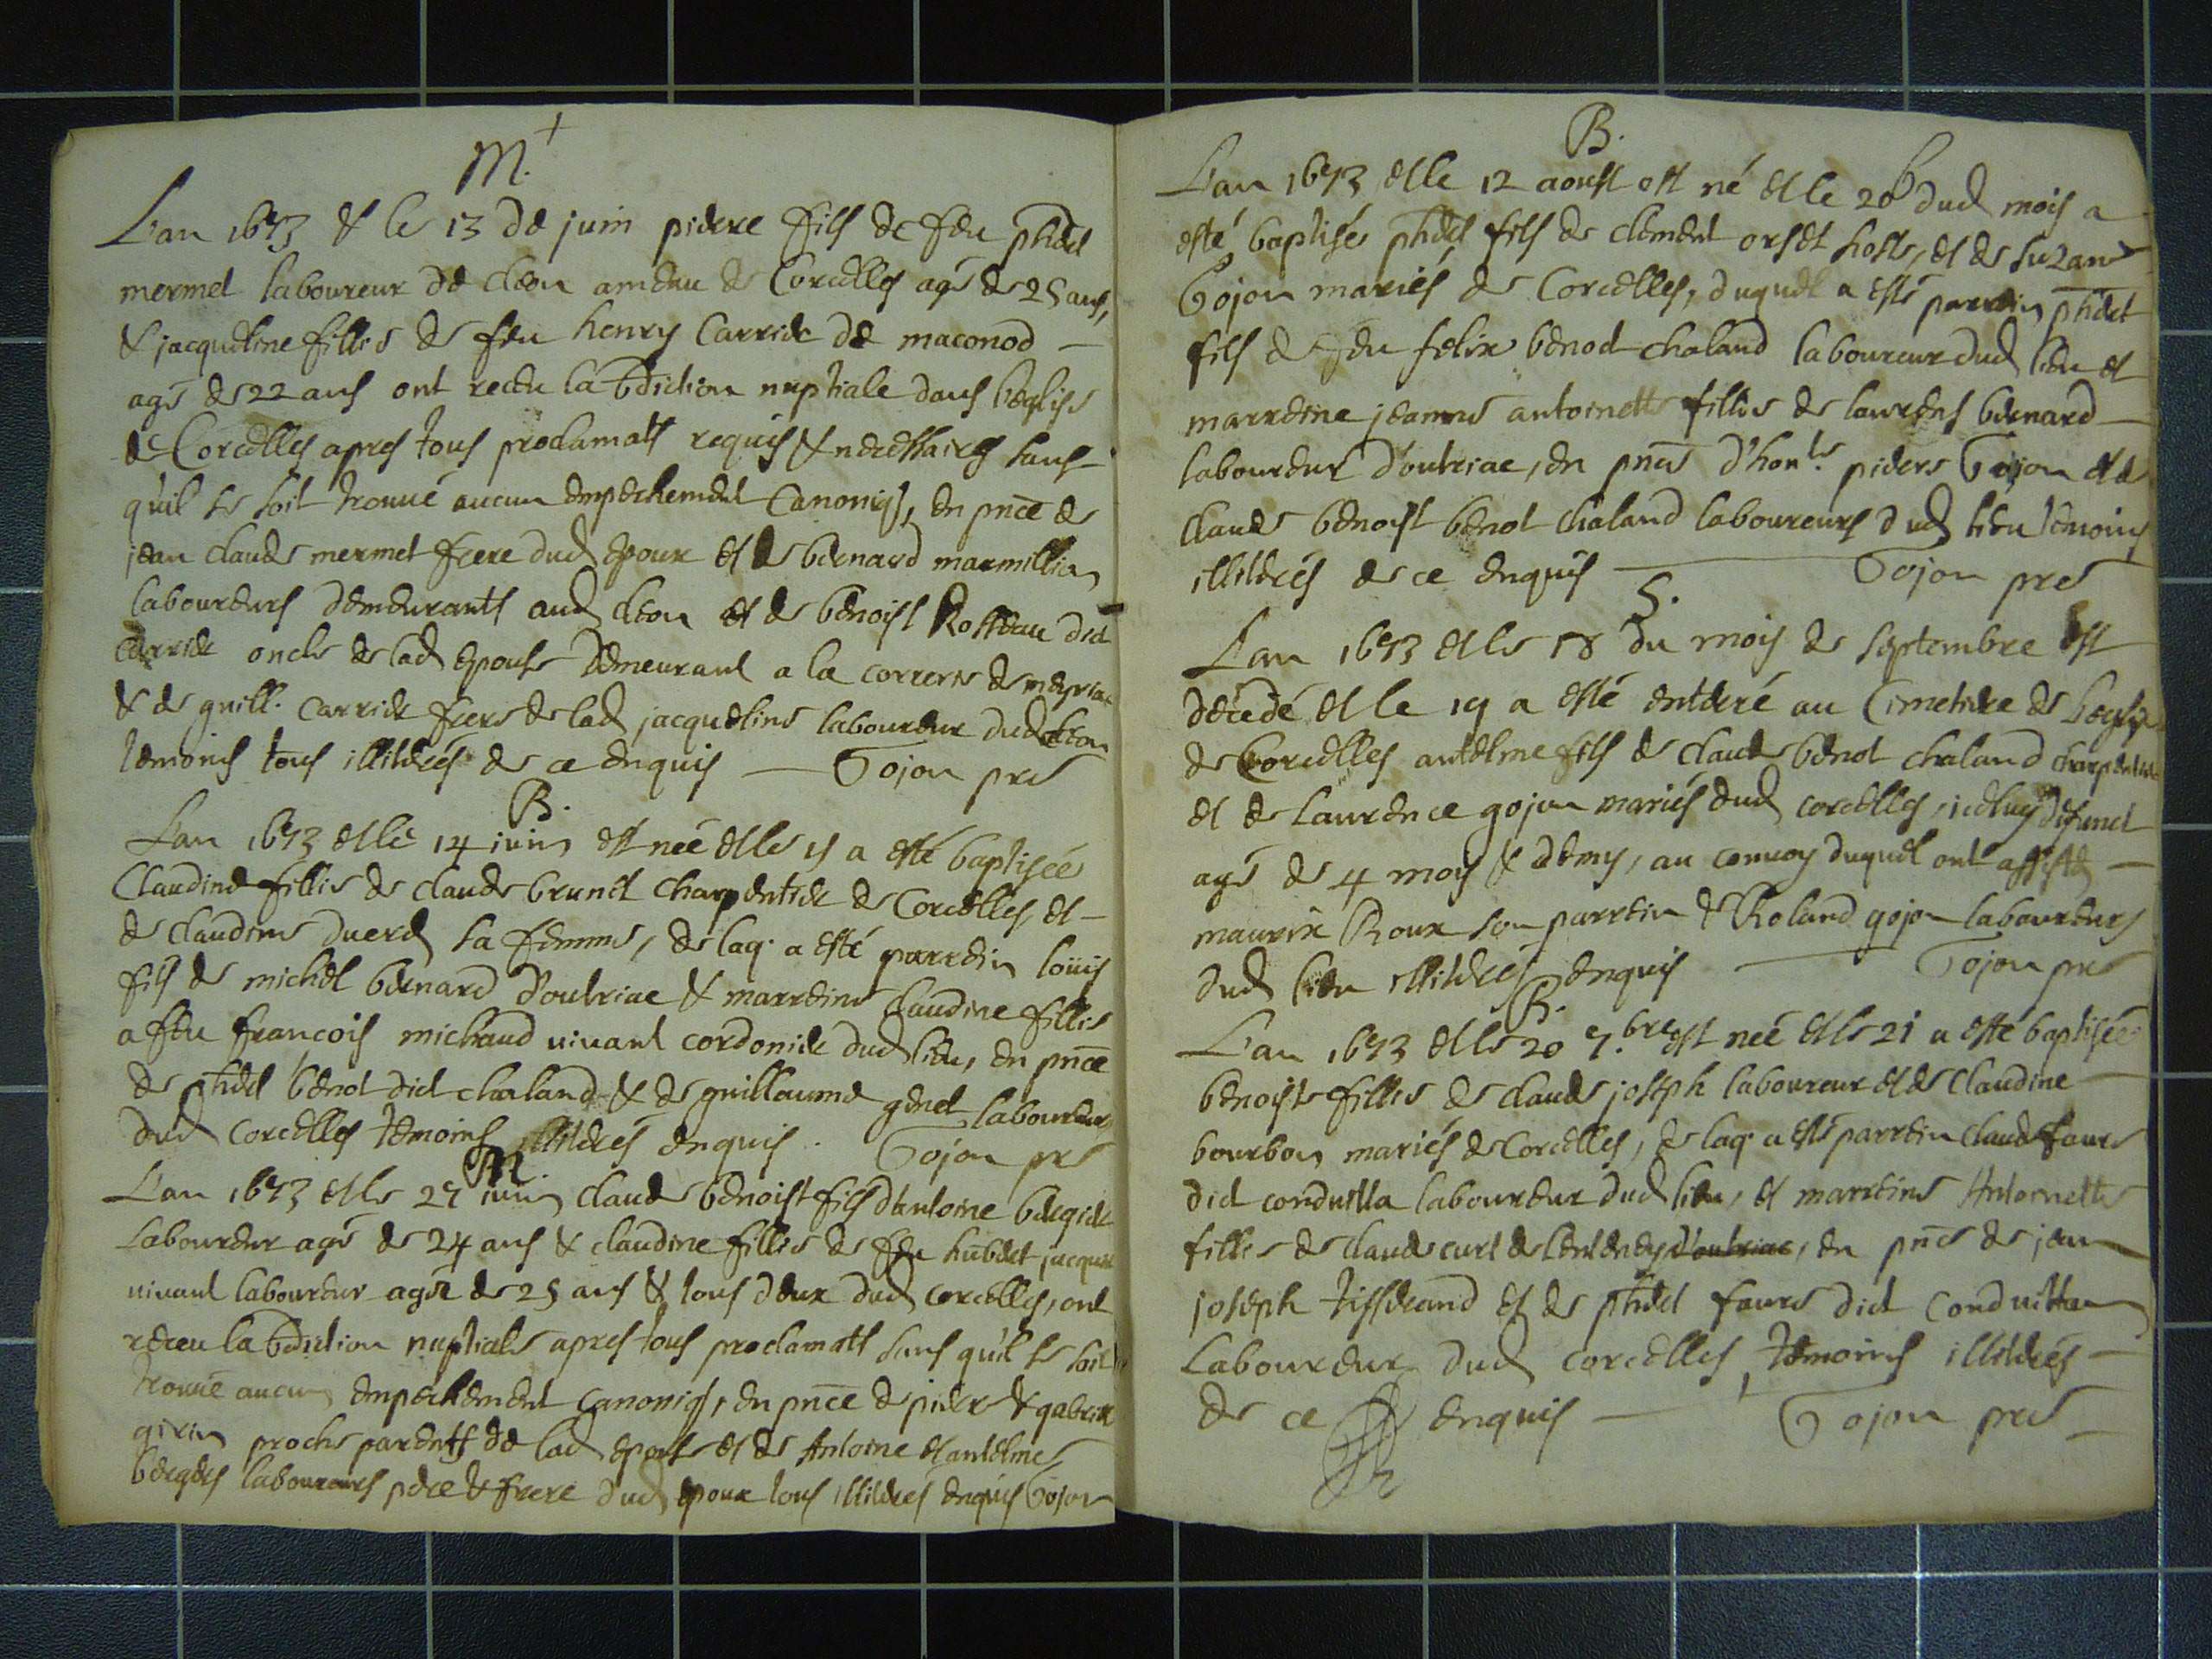 M.
L'an 1673 & le 13 de juin pierre fils de feu phibt
mermet laboureur de cleon ameau de Corcelles agé de 25 ans,
& jacqueline fillie de feu henry Carrier de maconod
agé de 22 ans ont receu la bdiction nuptiale dans l'eglise
de Corcelles apres tous proclamats requis & necessaires sans
quil se soit trouué aucun empechement Canoniq, en pnce de
jean claude mermet frere dud epoux et de bernard marmillion
laboureurs demeurants aud cleon et de benoist Rosseau dit
carrier oncle de lad epouse demeurant a la correrie de meyriat
& de guill. Carrier frere de lad jacqueline laboureur dud cleon
temoins tous illiterés de ce enquis Gojon pre
B.
L'an 1673 et le 14 iuin est neé et le 15 a esté baptiseé
Claudine fillie de claude brunet charpentier de Corcelles et
de claudine sa femme, de laq. a esté parrein loüis
fils de michel bernard d'outriac & marreine Claudine fillie
a feu francois michaud uiuant cordonier dud lieu, en pnce
de phibt benot dict chaland & de guillaume genet laboureurs
dud Corcelles temoins illiterés enquis. Gojon pre
M
L'an 1673 et le 27 iuin claude benoist fils d'antoine bergier
Laboureur agé de 24 ans & claudine fillie de feu hubert jacquier
uiuant laboureur ageé de 25 ans & tous deux dud corcelles, ont
receu la bdiction nuptiale apres tous proclamats sans qu'il se soit
trouué aucun empechement canoniq, en pnce de pierre & gabriel
girin proche parents de lad epouse et de Antoine et antelme
bergers laboureurs pere & frere dud epoux tous illiterés enquis Gojon
B.
L'an 1673 et le 12 aoust est né et le 20 dud mois a
esté baptisé phibt fils de clement orset hoste, et de suzane
Gojon mariés de Corcelles, duquel a esté parrein phibt
fils de feu felix benot chaland laboureur dud lieu et
marreine jeanne antoinette fillie de laurens bernard
laboureur d'outriac, en pnce d'hon.les pierre Gojon et de
claude benoist benot chaland laboureurs dud lieu temoins
illiterés de ce enquis Gojon pre
S.
L'an 1673 et le 18 du mois de septembre est
decedé et le 19 a esté enterré au Cimetiere de l'eglise
de Corcelles antelme fils de claude benot chaland charpentier
et de Laurence gojon mariés dud corcelles, iceluy defunct
agé de 4 mois & demy, au conuoy duquel ont assisté
maurix Roux son parrein & Roland gojon laboureurs
dud lieu illiterés enquis Gojon pre
B.
L'an 1673 et le 20 7.bre est neé et le 21 a esté baptiseé
benoiste fillie de claude joseph laboureur et de Claudine
bourbon mariés de Corcelles, de laq. a esté parrein claude faure
dict conduitta laboureur dud lieu, et marreine Antoinette
fillie de claude curt de lentenay d'outriac, en pnce de jean
joseph tisserand et de phibt faure dict conduittan
Laboureur dud corcelles, temoins illiterés
de ce enquis Gojon pre